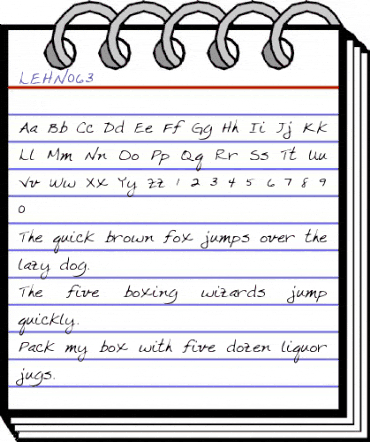 LEHN063
Aa Bb Cc Dd Ee Ff Gg Hh Ii Jj Kk
Ll Mm Nn Oo Pp Qq Rr Ss Tt Uu
Vv Ww Xx Yy Zz 1 2 3 4 5 6 7 8 9
0
The quick brown fox jumps over the
lazy dog.
The five boxing wizards jump
quickly.
Pack my box with five dozen liquor
jugs.